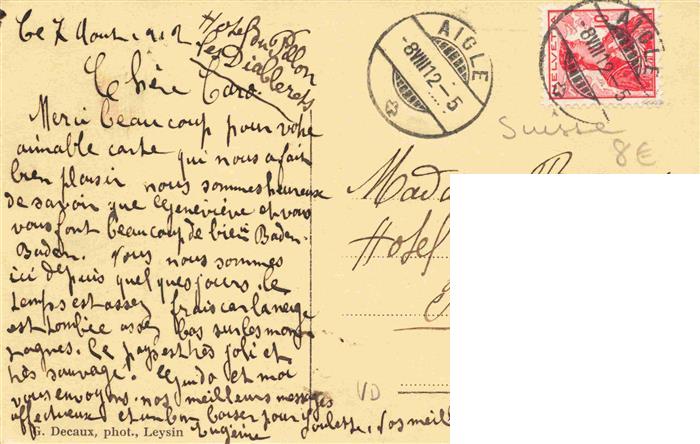 Ce 7 Aout 1912
Hotel du Pillon
Les Diablerets
Chère Caro.
Merci beaucoup pour votre
aimable carte qui nous a fait
bien plaisir nous sommes heureux
de savoir que Geneviève et vous
vous font beaucoup de bien Baden-
Baden. Nous nous sommes
ici depuis quelques jours. le
temps est assez frais car la neige
est tombée assez bas sur les mon
tagnes. Le pays est très joli et
très sauvage. Guido et moi
vous envoyons nos meilleurs messages
affectueux et un bon baiser pour
Eugénie
G. Decaux, phot., Leysin
AIGLE
-8VIII12-5
HELVETIA
AIGLE
-8VIII12-5
Suisse
8€
Hotel
VD